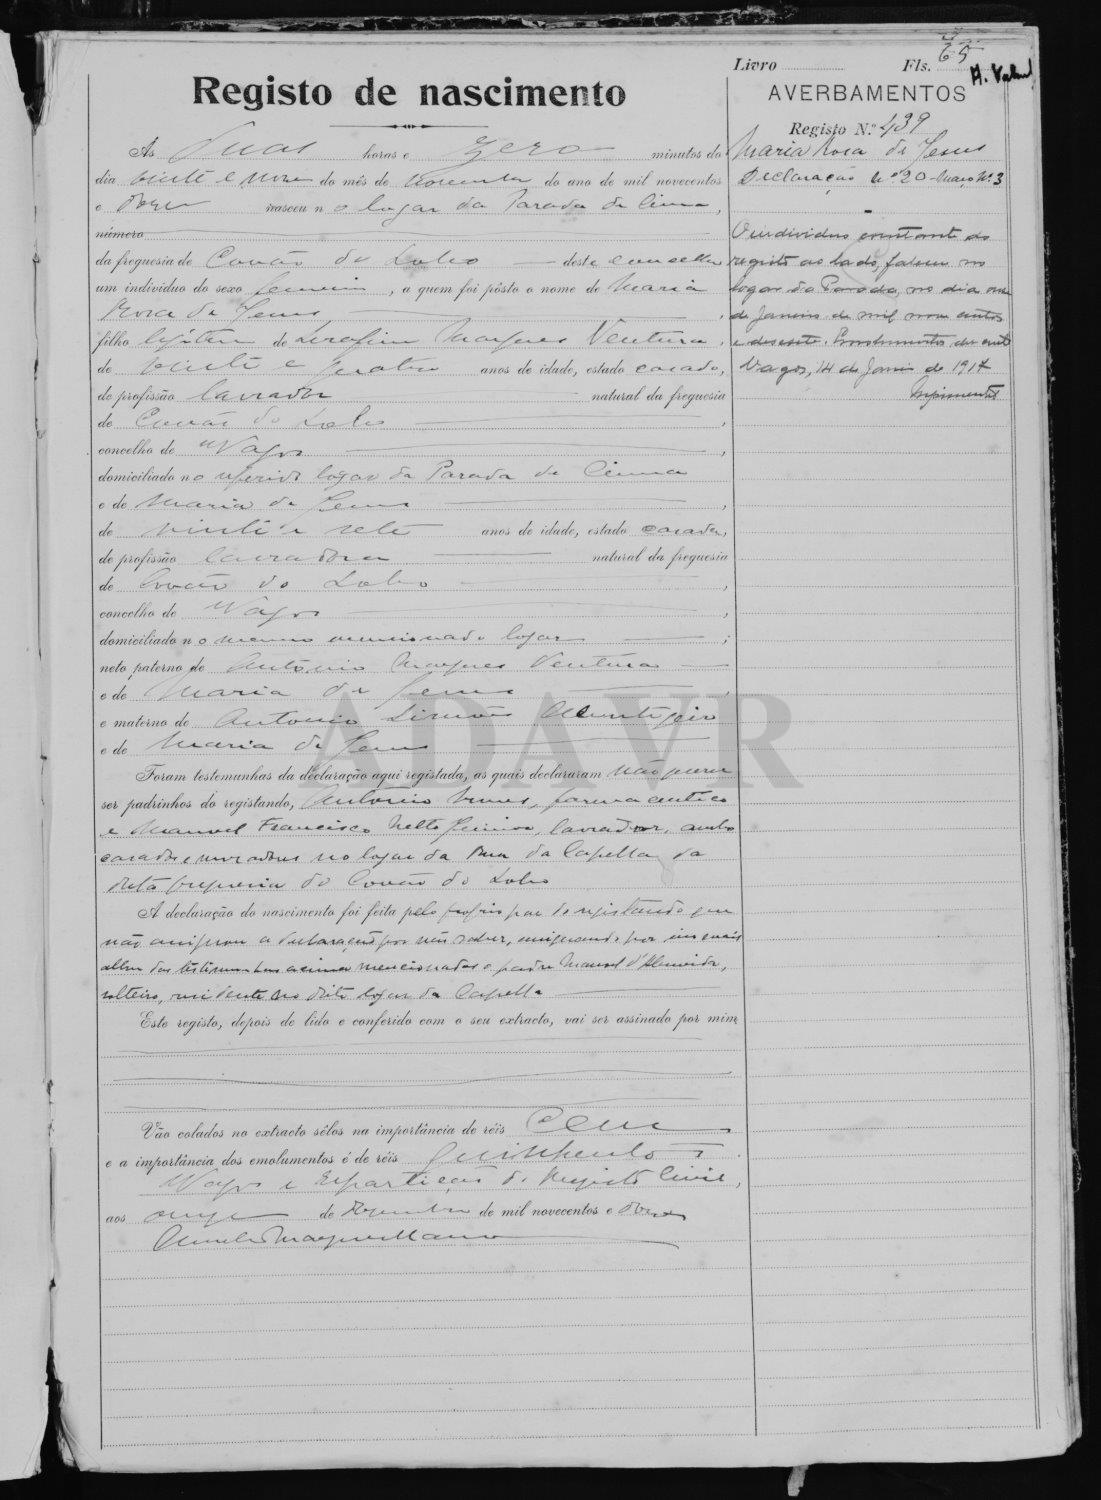 Livro Fls. 65
Registo de nascimento
AVERBAMENTOS
Registo N.º 439
Maria Rosa de Jesus
Declaração nº 20 Março Nº 3
O individuo constante do
registo ao lado, faleceu no
logar da Parada, no dia
de Janeiro de mil nove centos
e desesete.
Vagos, 14 de Janeiro de 1917
Ás duas horas e zero minutos do
dia vinte e nove do mês de novembro do ano de mil novecentos
e doze nasceu no logar da Parada de Cima,
número
da freguesia de Covão do Lobo deste concelho
um individuo do sexo feminino, a quem foi pôsto o nome de Maria
Rosa de Jesus,
filho legitimo de Serafim Marques Ventura,
de vinte e quatro anos de idade, estado casado,
de profissão lavrador natural da freguesia
de Covão do Lobo,
concelho de Vagos,
domiciliado no referido logar da Parada de Cima
e de Maria de Jesus,
de vinte e sete anos de idade, estado casada,
de profissão lavradora natural da freguesia
de Covão do Lobo,
concelho de Vagos,
domiciliado no mesmo mencionado logar;
neto paterno de António Marques Ventura
e de Maria de Jesus,
e materno de Antonio Simões
e de Maria de Jesus
Foram testemunhas da declaração aqui registada, as quais declararam não querer
ser padrinhos do registando, António Nunes, farmaceutico
e Manuel Francisco Netto, lavrador, ambos
casados e moradores no logar da Rua da Capella da
dita freguesia do Covão do Lobo
A declaração do nascimento foi feita pelo proprio pae do registando que
não assignou a declaração por não saber, assignando por
alem das testemunhas acima mencionadas o padre Manuel d'Almeida,
solteiro, residente no dito logar da Capella
Este registo, depois de lido e conferido com o seu extracto, vai ser assinado por mim
Vão colados no extracto sêlos na importância de réis Cem
e a importância dos emolumentos é de réis quinhentos
Vagos e Repartição do Registo Civil,
aos onze de Dezembro de mil novecentos e doze
ADAVR